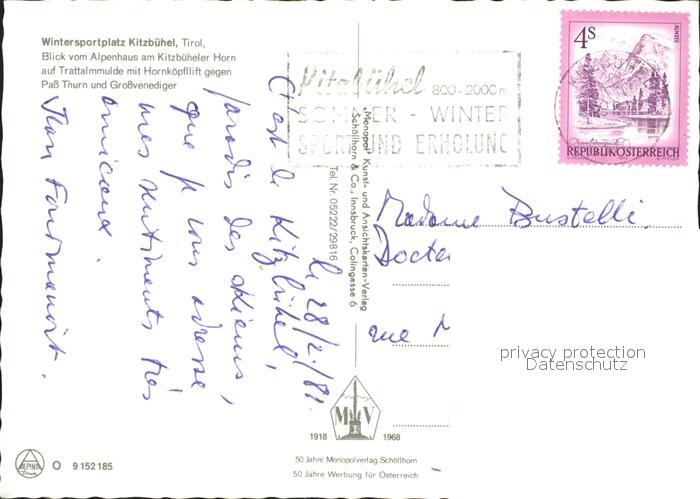 Wintersportplatz Kitzbühel, Tirol,
Blick vom Alpenhaus am Kitzbüheler Horn
auf Trattalmmulde mit Hornköpfllift gegen
Paß Thurn und Großvenediger
Kitzbühel 800-2000m
SOMMER - WINTER
SPORT UND ERHOLUNG
4S
ALMSEE
REPUBLIK ÖSTERREICH
le 28/2/81
C'est de Kitzbühel,
paradis des skieurs,
que je vous adresse
mes sentiments très
amicaux.
Jean
"Monopol" Kunst- und Ansichtskarten-Verlag
Schöllhorn & Co., Innsbruck, Colingasse 6
Tel. Nr. 05222/29816
Madame Bustelli
Docte
rue M
privacy protection
Datenschutz
M V
1918 1968
50 Jahre Monopolverlag Schöllhorn
50 Jahre Werbung für Österreich
ALPINA
Druck
O 9 152 185